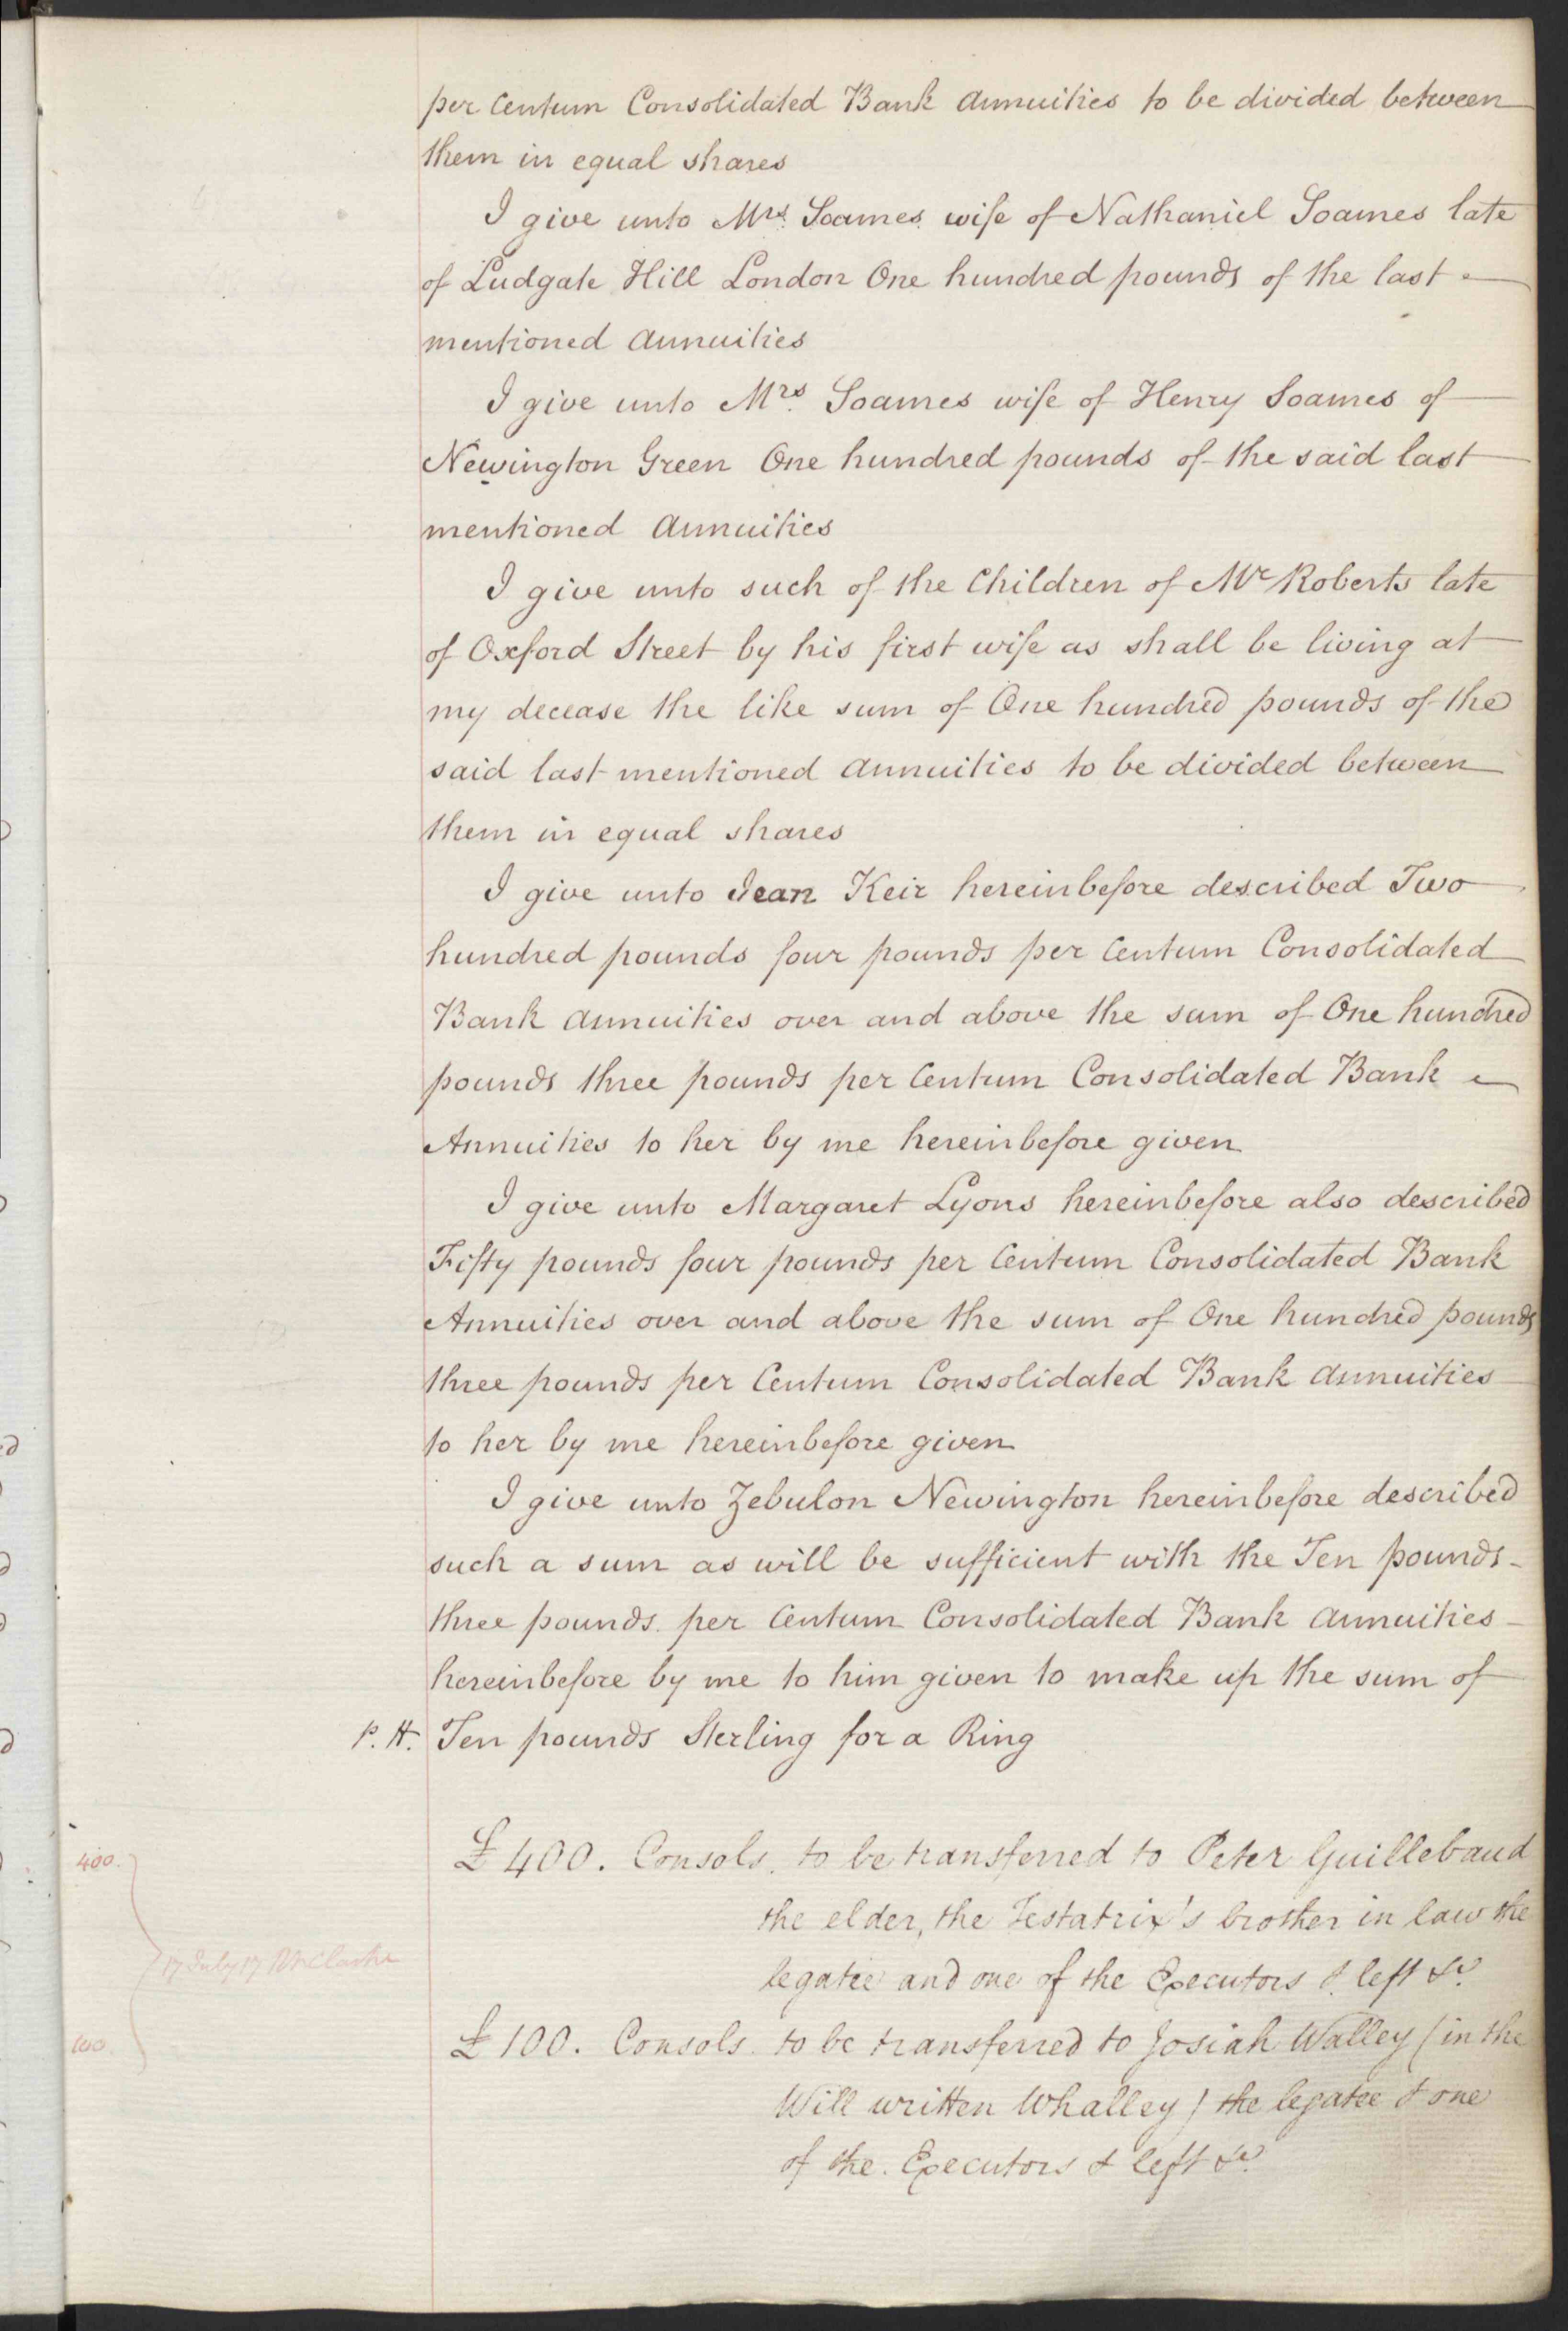 per Centum Consolidated Bank Annuities to be divided between
them in equal shares
I give unto Mrs. Soames wife of Nathaniel Soames late
of Ludgate Hill London One hundred pounds of the last
mentioned Annuities
I give unto Mrs. Soames wife of Henry Soames of
Newington Green One hundred pounds of the said last
mentioned Annuities
I give unto such of the Children of Mr Roberts late
of Oxford Street by his first wife as shall be living at
my decease the like sum of One hundred pounds of the
said last mentioned Annuities to be divided between
them in equal shares
I give unto Jean Keir hereinbefore described Two
hundred pounds four pounds per Centum Consolidated
Bank Annuities over and above the sum of One hundred
pounds three pounds per Centum Consolidated Bank
Annuities to her by me hereinbefore given
I give unto Margaret Lyons hereinbefore also described
Fifty pounds four pounds per Centum Consolidated Bank
Annuities over and above the sum of One hundred pounds
three pounds per Centum Consolidated Bank Annuities
to her by me hereinbefore given
I give unto Zebulon Newington hereinbefore described
such a sum as will be sufficient with the Ten pounds
three pounds per Centum Consolidated Bank Annuities
hereinbefore by me to him given to make up the sum of
P. H. Ten pounds Sterling for a Ring
400. £400. Consols. to be transferred to Peter Guillebaud
the elder, the Testatrix's brother in law the
17 July 17 legatee and one of the Executors & left &c.
100 £100. Consols. to be transferred to Josiah Walley (in the
Will written Whalley) the legatee & one
of the Executors & left &c.